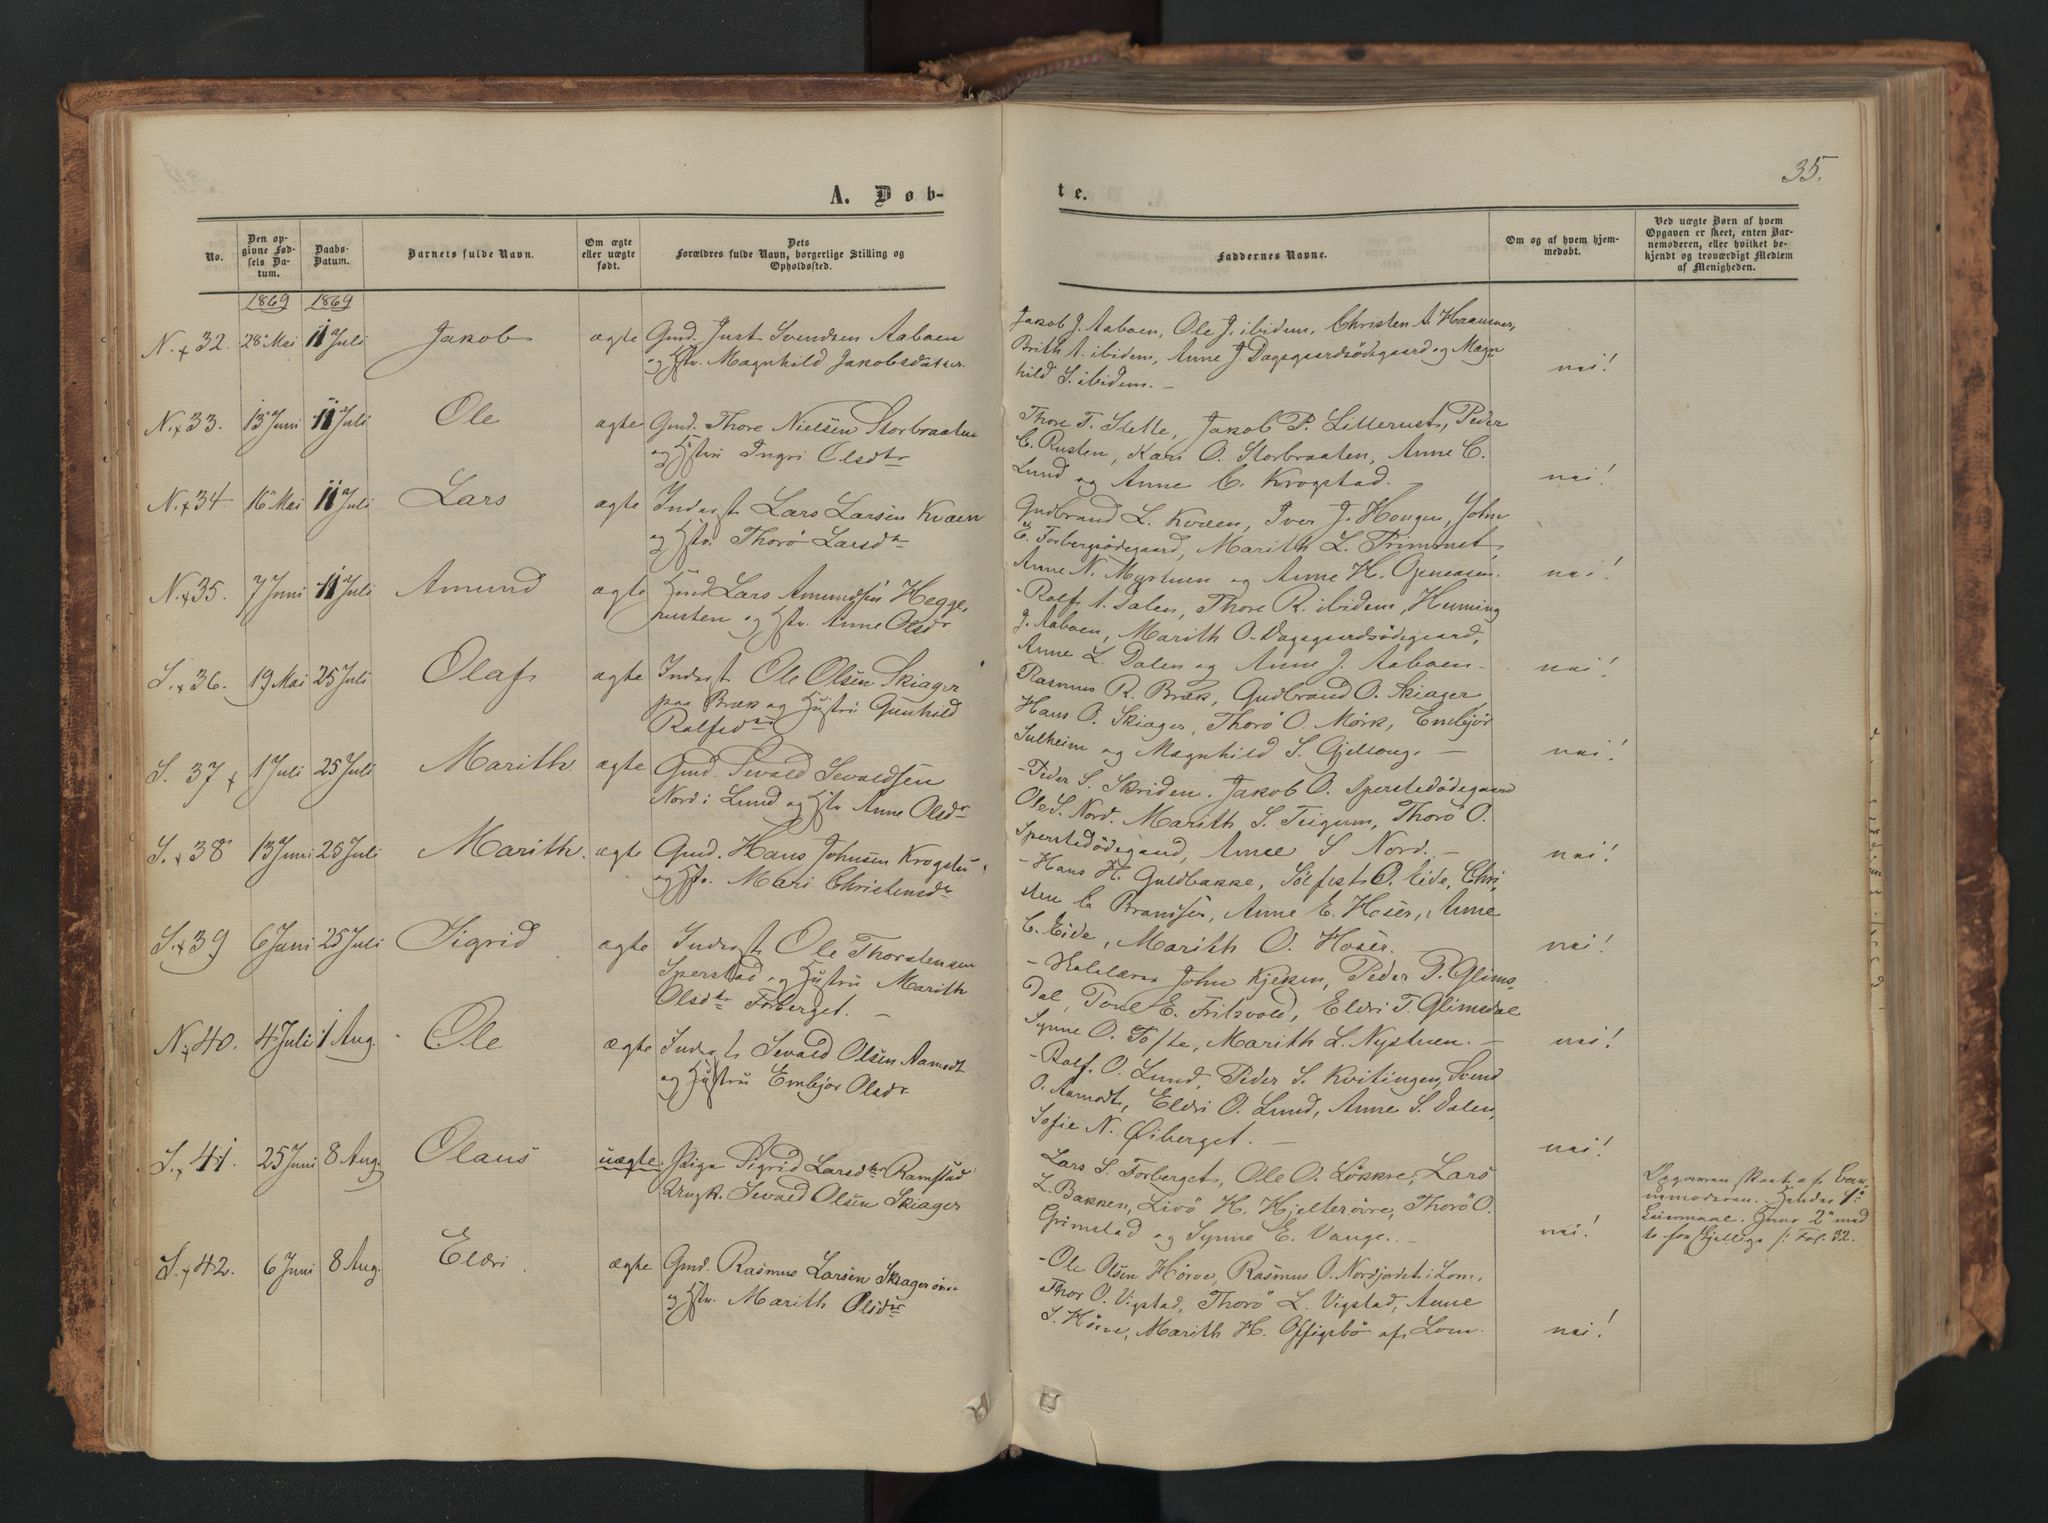 35.
A. Døb-
te.
No.
Den op-
givne Fød-
sels Da-
tum.
Daabs-
Datum.
Barnets fulde Navn.
Om ægte
eller uægte
født.
Dets
Forældres fulde Navn, borgerlige Stilling og
Opholdssted.
Faddernes Navne.
Om og af hvem hjem-
medøbt.
Ved uægte Børn af hvem
Opgaven er skeet, enten Bar-
nemoderen, eller hvilket be-
kjendt og troværdigt Medlem
af Menigheden.
1869 1869
N. 32. 28 Mai 11 Juli Jakob ægte Gmd. Just Svendsen Aaboen
og Hstr. Magnhild Jakobsdatter.
Jakob J. Aaboen, Ole J. ibidem, Christen A. Haansver,
Brith A. ibidem, Anne J. Dagsgaardsödegaard og Magn-
hild S. ibidem. –
nei!
N. 33. 13 Juni 11 Juli Ole ægte Gmd. Thore Nielsen Storbraaten
og Hstru Ingri Olsdtr
Thore T. Slette, Jakob P. Lillerust, Peder
C. Rusten, Kari O. Storbraaten, Anne C.
Lund og Anne C. Krogstad.
nei!
N. 34. 16 Mai 11 Juli Lars ægte Inderst Lars Larsen Kvæen
og Hstr. Thorö Larsdtr
Gudbrand L. Kvæen, Iver J. Hougen, John
E. Forbergsödegaard, Marith L. Frimmet,
Anne N. Nystuen og Anne H.
nei!
N. 35. 7 Juni 11 Juli Amund ægte Gmd Lars Amundsen Hegge-
rusten og Hstr. Anne Olsdr
- Rolf A. Dalen, Thore R. ibidem, Heming
J. Aaboen, Marith O. Dagsgaardsödegaard,
Anne L. Dalen og Anne J. Aaboen.
nei!
S. 36. 19 Mai 25 Juli Olaf ægte Inderst Ole Olsen Skiager
paa Bræk og Hustru Gunhild
Rolfsdtr
Rasmus R. Bræk, Gudbrand O. Skiager
Hans O. Skiager, Thorö O. Mörk, Embjör
Sulheim og Magnhild S. Gjellong. –
nei!
S. 37 1 Juli 25 Juli Marith ægte Gmd. Sevald Sevaldsen
Nord i Lund og Hstr Anne Olsdr
- Peder S. Skriden, Jakob O. Sperstadödegaard
Ole S. Nord. Marith S. Teigum, Thorö O.
Sperstadödegaard, Anne S Nord. –
nei!
S. 38 13 Juni 25 Juli Marith. ægte Gmd. Hans Johnsen Krogstu
og Hstr. Mari Christensdtr
- Hans H. Guldbakke, Sölfest O. Eide, Chri-
sten C. Bransser, Anne E. Hoser, Anne
C. Eide, Marith O. Hoser.
nei!
S. 39 6 Juni 25 Juli Sigrid ægte Inderst Ole Thorstensen
Sperstad og Hustru Marith
Olsdtr Forberget. –
John Kjeken, Peder P. Glims-
dal, Tone E. Fritzvold, Eldri T. Glimsdal
Synne O. Tofte, Marith L. Nystuen. –
nei!
N. 40. 4 Juli 1 Aug. Ole ægte Inderst Sevald Olsen Aamodt
og Hustru Embjör Olsdr
- Rolf. O. Lund, Peder S. Kvitingen, Svend
O. Aamodt, Eldri O. Lund, Anne S. Dalen,
Sofie N. Øiberget. –
nei!
S. 41. 25 Juni 8 Aug. Olaus uægte Pige Sigrid Larsdtr Ramstad
Ungk. Sevald Olsen Skiager
Lars S. Forberget, Ole O. Løkkre, Lars
L. Bakken, Livö H. Hjelteröire, Thorö O.
Grimstad og Synne E. Vange. –
nei!
Opgaven skeet af Bar-
nemoderen. Hendes 1ste
Leiermaal. Hans 2det med
Fol. 32.
S. 42. 6 Juni 8 Aug. Eldri ægte Gmd. Rasmus Larsen Skiagerøne
og Hstr. Marith Olsdtr
- Ole Olsen Hörve, Rasmus O. Nordjordet i Lom.
Thor O. Vigstad, Thorö L. Vigstad, Anne
S. Hörve, Marith H. Offigsbö af Lom.
nei!